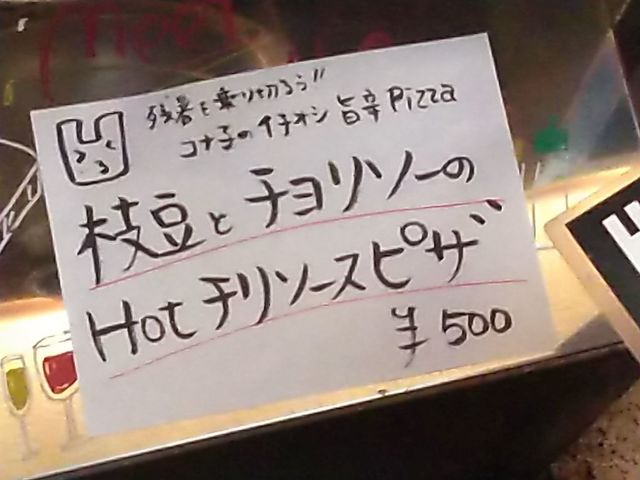 残暑を乗り切ろう!!
コナ子のイチオシ旨辛Pizza
枝豆とチョリソーの
Hotチリソースピザ
¥500